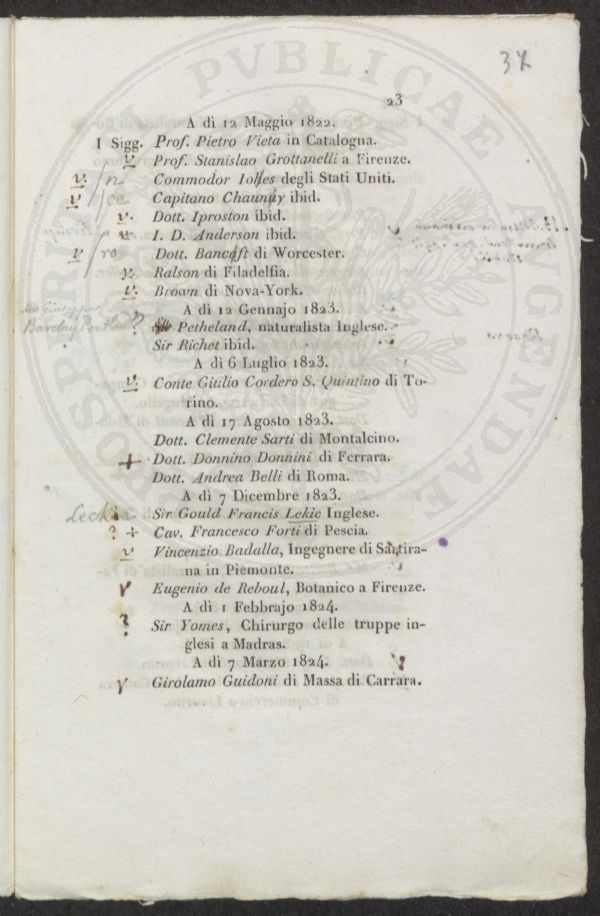 37
23
A dì 12 Maggio 1822.
I Sigg. Prof. Pietro Vieta in Catalogna.
v Prof. Stanislao Grottanelli a Firenze.
v /n Commodor Iolles degli Stati Uniti.
v /ce Capitano Chaunay ibid.
v. Dott. Iproston ibid.
I. D. Anderson ibid.
v /ro Dott. Bancaft di Worcester.
v. Ralson di Filadelfia.
v. Brown di Nova-York.
A dì 12 Gennajo 1823.
? Petheland, naturalista Inglese.
Barclay
Sir Richet ibid.
A dì 6 Luglio 1823.
v Conte Giulio Cordero S. Quintino di To-
rino.
A dì 17 Agosto 1823.
Dott. Clemente Sarti di Montalcino.
+ Dott. Donnino Donnini di Ferrara.
Dott. Andrea Belli di Roma.
A dì 7 Dicembre 1823.
Sir Gould Francis Lekie Inglese.
? + Cav. Francesco Forti di Pescia.
v Vincenzio Badalla, Ingegnere di Sartira-
na in Piemonte.
v Eugenio de Reboul, Botanico a Firenze.
A dì 1 Febbrajo 1824.
? Sir Yomes, Chirurgo delle truppe in-
glesi a Madras.
A dì 7 Marzo 1824.
v Girolamo Guidoni di Massa di Carrara.
PVBLICAE
PROSPERITATI AVGENDAE